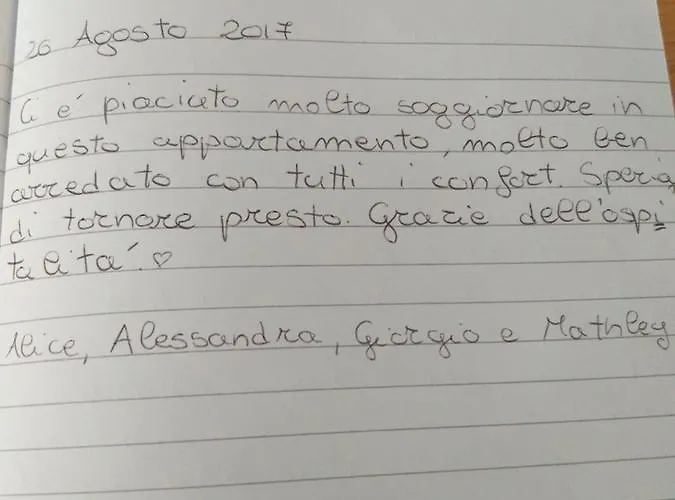 26 Agosto 2017
Ci é piaciuto molto soggiornare in
questo appartamento, molto ben
arredato con tutti i confort. Speria
di tornare presto. Grazie dell'ospi
talitá. ♡
Alice, Alessandra, Giorgio e Mathley